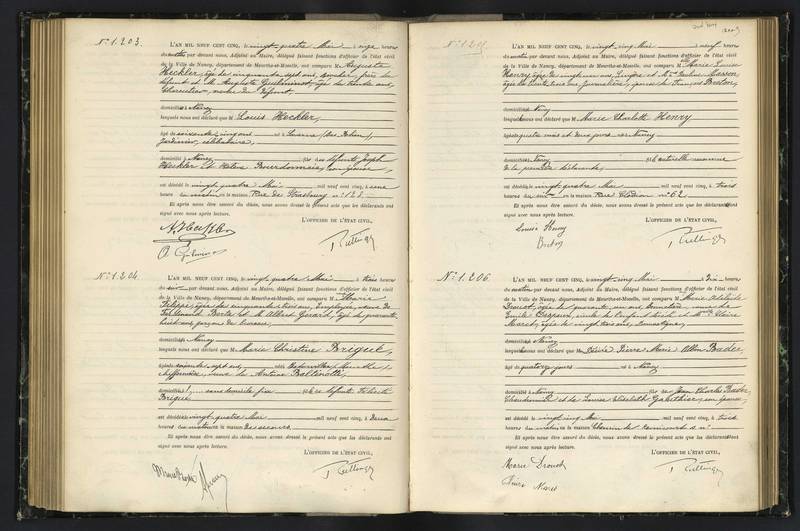 N° 1.203.
L'AN MIL NEUF CENT CINQ, le vingt quatre Mai à onze heures
du matin par devant nous, Adjoint au Maire, délégué faisant fonctions d'officier de l'état civil
de la Ville de Nancy, département de Meurthe-et-Moselle, ont comparu M. Auguste
Heckler, âgé de cinquante sept ans, frère du
défunt et M. Auguste âgé de trente ans,
du défunt,
domiciliés à Nancy
lesquels nous ont déclaré que M. Louis Heckler,
âgé de soixante cinq ans né à
Jardinier, célibataire,
domicilié à Nancy fils de défunts Joseph
Heckler et Hélène Bourdonnais, conjoints,
est décédé le vingt quatre Mai mil neuf cent cinq, à une
heure du matin en la maison Rue de Strasbourg n° 123.
Et après nous être assuré du décès, nous avons dressé le présent acte que les déclarants ont
signé avec nous après lecture.
L'OFFICIER DE L'ÉTAT CIVIL,
A. Heckler
N° 1.204.
L'AN MIL NEUF CENT CINQ, le vingt quatre Mai à trois heures
du soir par devant nous, Adjoint au Maire, délégué faisant fonctions d'officier de l'état civil
de la Ville de Nancy, département de Meurthe-et-Moselle, ont comparu M. Marie
Philippe, âgée de cinquante trois ans, Employée, veuve de
Ferdinand et M. Albert Gérard, âgé de quarante
huit ans, garçon de bureau,
domiciliés à Nancy
lesquels nous ont déclaré que M. Marie Christine Briquet,
âgée de soixante sept ans, née à
chiffonnière, veuve de Antoine
domiciliée à sans domicile fixe fille de défunte Félicité
Briquet
est décédée le vingt quatre Mai mil neuf cent cinq, à deux
heures du matin en la maison de secours
Et après nous être assuré du décès, nous avons dressé le présent acte que les déclarants ont
signé avec nous après lecture.
L'OFFICIER DE L'ÉTAT CIVIL,
N° 1.205
L'AN MIL NEUF CENT CINQ, le vingt cinq Mai à neuf heures
du matin par devant nous, Adjoint au Maire, délégué faisant fonctions d'officier de l'état civil
de la Ville de Nancy, département de Meurthe-et-Moselle, ont comparu Marie Louise
Henry âgée de vingt un ans, Lingère et Pauline Masson
âgée de trente trois ans, Journalière, épouse de François Breton,
domiciliées à Nancy
lesquelles nous ont déclaré que M. Marie Charlotte Henry
âgée de quatre mois et deux jours née à Nancy
domiciliée à Nancy fille naturelle reconnue
de la première déclarante,
est décédée le vingt quatre Mai mil neuf cent cinq, à trois
heures du soir en la maison Rue Clodion n° 62.
Et après nous être assuré du décès, nous avons dressé le présent acte que les déclarantes ont
signé avec nous après lecture.
L'OFFICIER DE L'ÉTAT CIVIL,
Louise Henry
Breton
N° 1.206
L'AN MIL NEUF CENT CINQ, le vingt cinq Mai à dix heures
du matin par devant nous, Adjoint au Maire, délégué faisant fonctions d'officier de l'état civil
de la Ville de Nancy, département de Meurthe-et-Moselle, ont comparu M. Marie Adélaïde
âgée de quarante un ans, veuve de
Emile et Claire
Maret, âgée de vingt trois ans, Domestique,
domiciliées à Nancy
lesquelles nous ont déclaré que Pierre Marie Albin Bader
âgé de quatorze jours né à Nancy
domicilié à Nancy fils de Jean Charles Bader,
et de Louise Elisabeth Gauthier, son épouse,
est décédé le vingt cinq Mai mil neuf cent cinq, à trois
heures du matin en la maison
Et après nous être assuré du décès, nous avons dressé le présent acte que les déclarantes ont
signé avec nous après lecture.
L'OFFICIER DE L'ÉTAT CIVIL,
Marie Drouot
Claire Maret